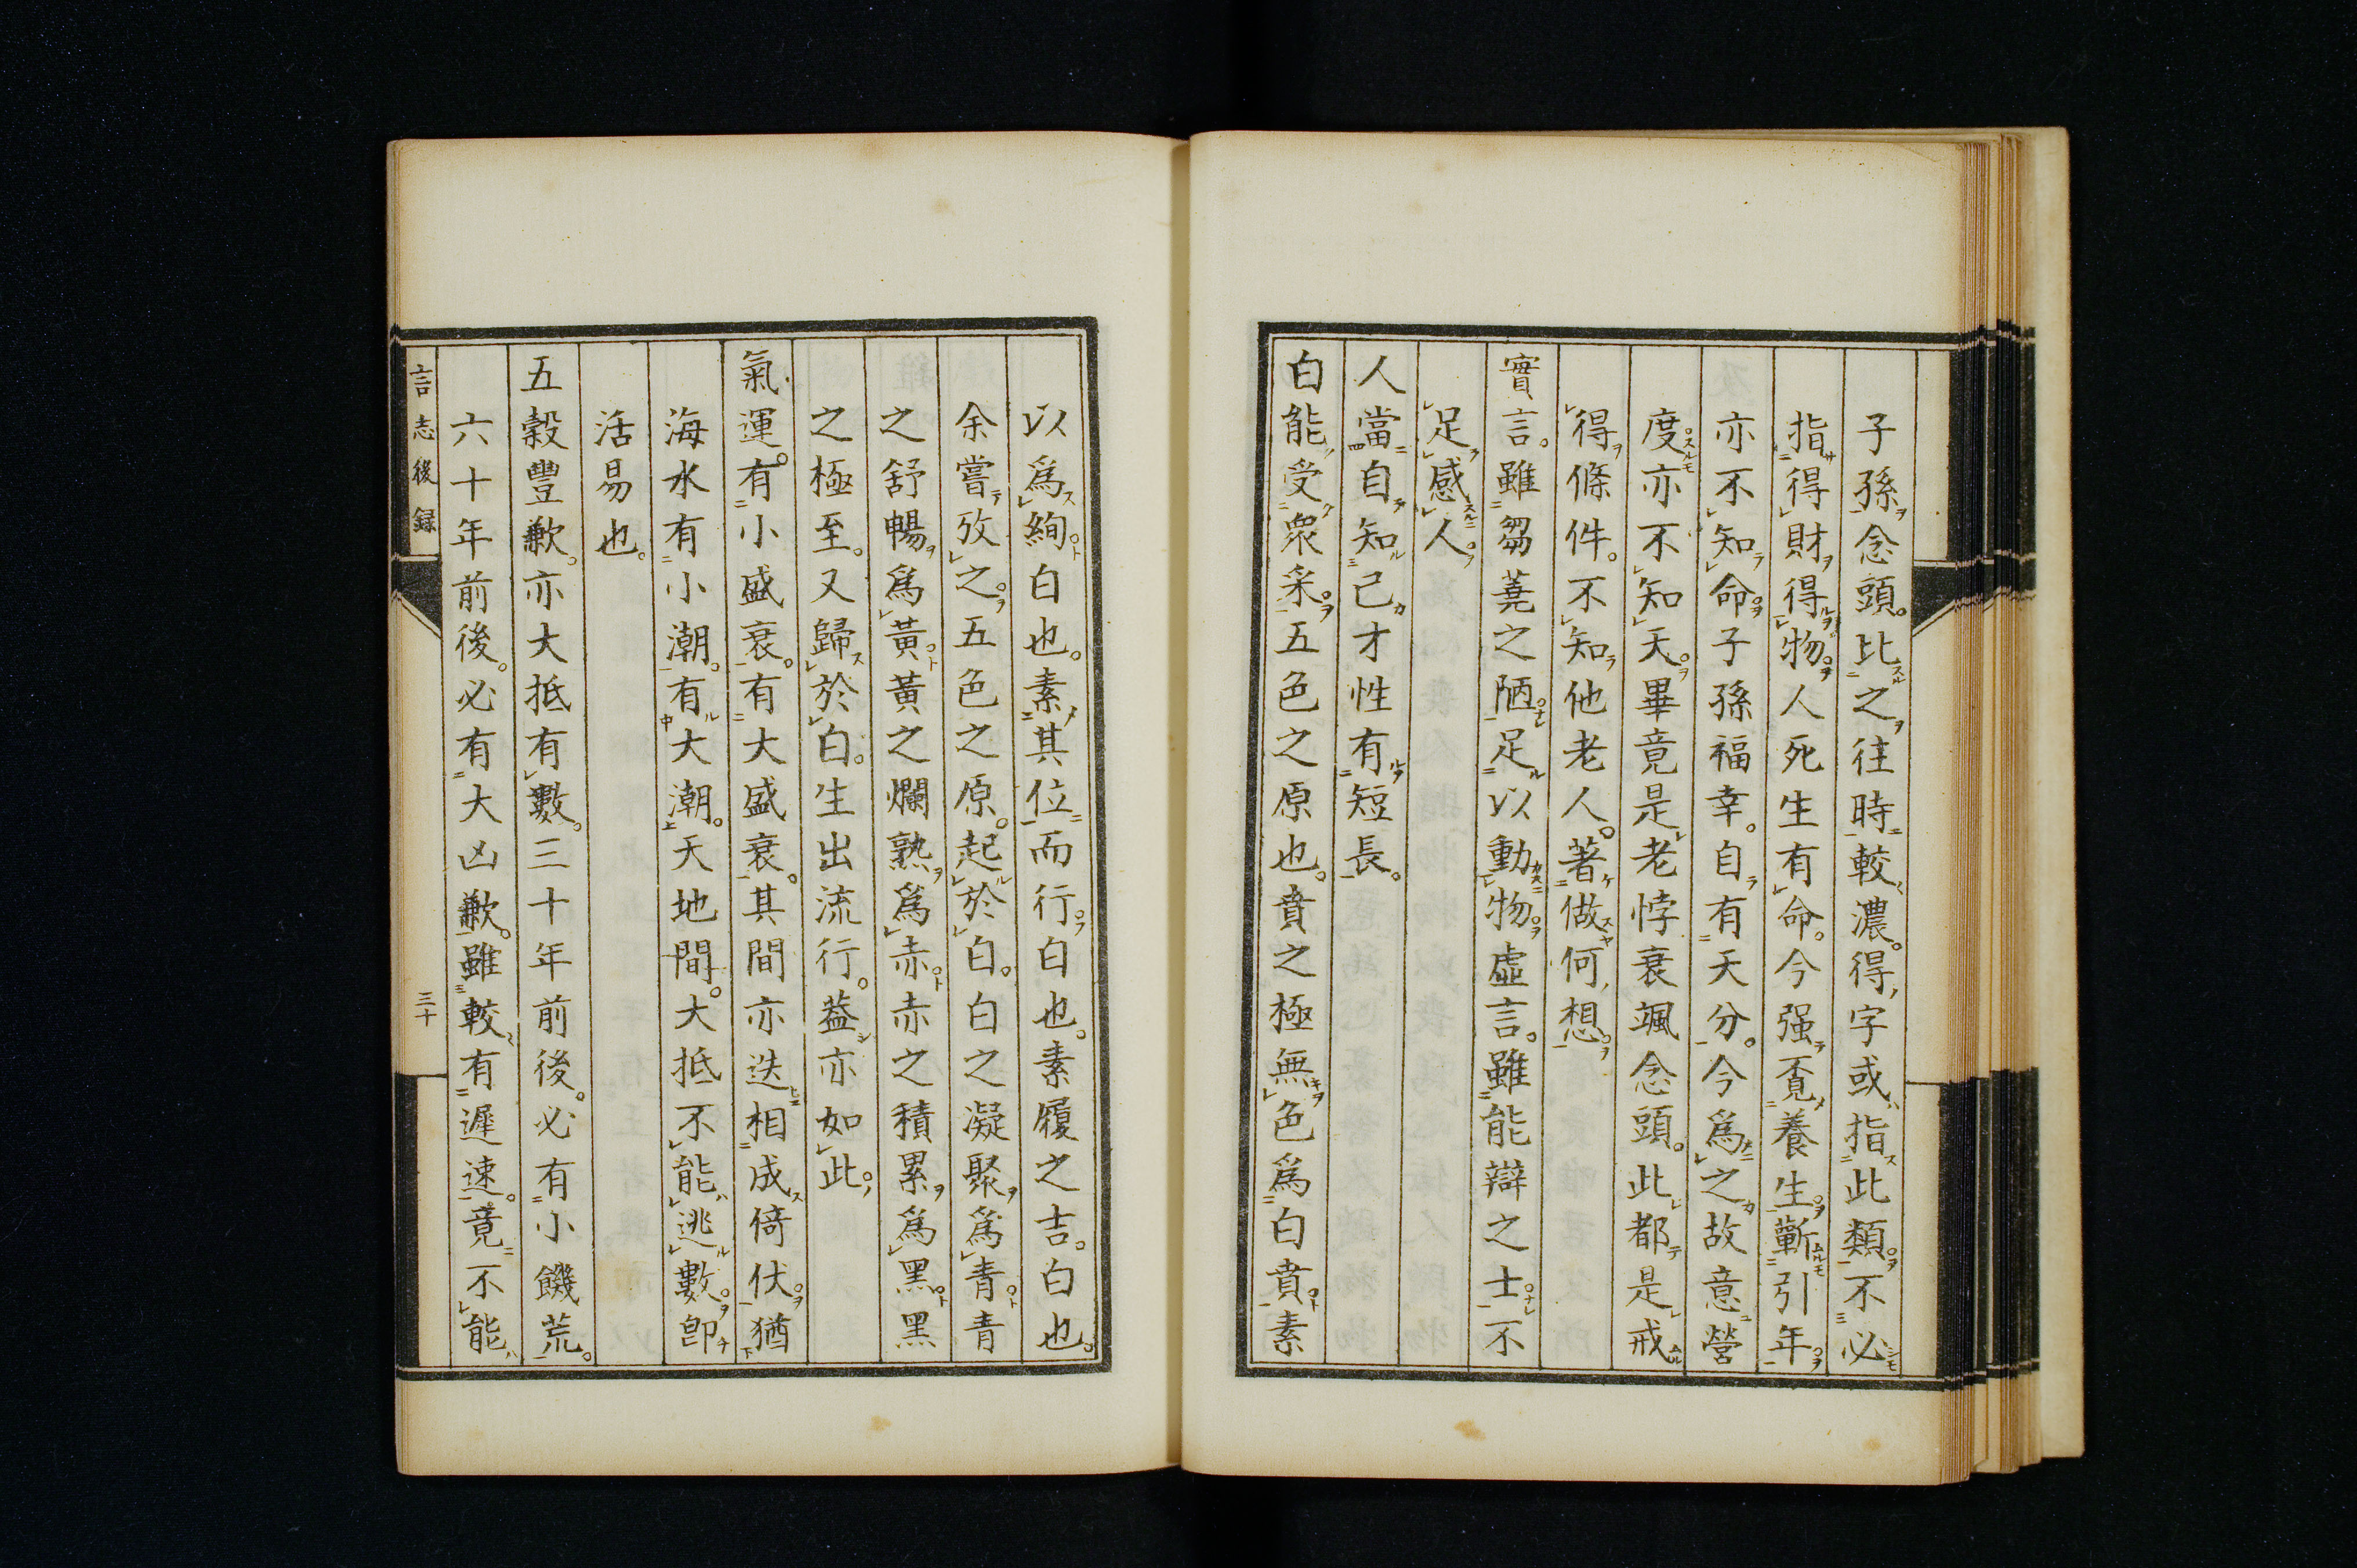 子孫念頭。比之往時較濃。得字或指此類。不必
指得財得物。人死生有命。今强覔養生。蘄引年。
亦不知命。子孫福幸。自有天分。今爲之故意營
度。亦不知天。畢竟是老悖衰颯念頭。此都是戒
得條件。不知他老人。著做何想。
實言。雖芻蕘之陋。足以動物。虛言。雖能辯之士。不
足感人。
人當自知己才性有短長。
白能受衆采。五色之原也。賁之極無色爲白賁。素
以爲絢。白也。素其位而行。白也。素履之吉。白也。
余嘗攷之。五色之原。起於白。白之凝聚爲青。青
之舒暢爲黃。黃之爛熟爲赤。赤之積累爲黑。黑
之極至。又歸於白。生出流行。葢亦如此。
氣運。有小盛衰。有大盛衰。其間亦迭相成倚伏。猶
海水有小潮。有大潮。天地間。大抵不能逃數。卽
活易也。
五穀豐歉。亦大抵有數。三十年前後。必有小饑荒。
六十年前後。必有大凶歉。雖較有遲速。竟不能
言志後録
三十